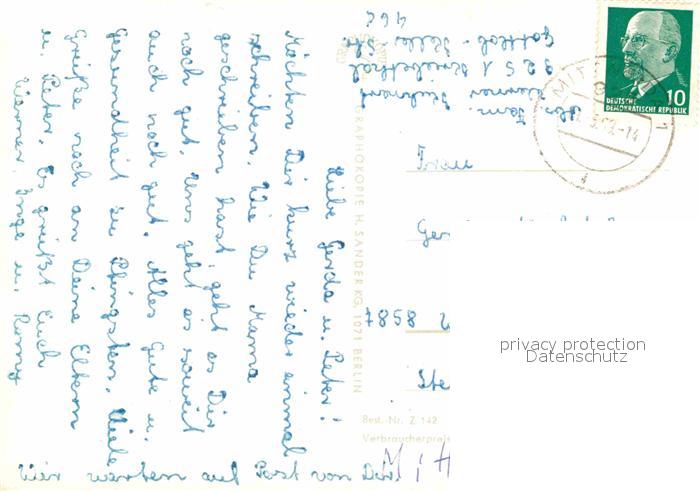 Liebe Gerda u. Peter!
Möchten Dir kurz wieder einmal
schreiben. Wie Du Mama
geschrieben hast, geht es Dir
noch gut. Uns geht es soweit
auch noch gut. Alles Gute u.
Gesundheit zu Pfingsten. Viele
Grüße noch an Deine Eltern
u. Peter. Es grüßt Euch
Werner, Inge u. Romy
wir warten auf Post von Dir
Abs. Fam.
Werner
9251
Gottlob-Keller-Str
46c
PHOTOGRAPHOKOPIE H. SANDER KG, 1071 BERLIN
DEUTSCHE
DEMOKRATISCHE REPUBLIK
10
MIT
Frau
Ger
7858
Ste
Best.-Nr. Z 142
Verbraucherpreis
privacy protection
Datenschutz